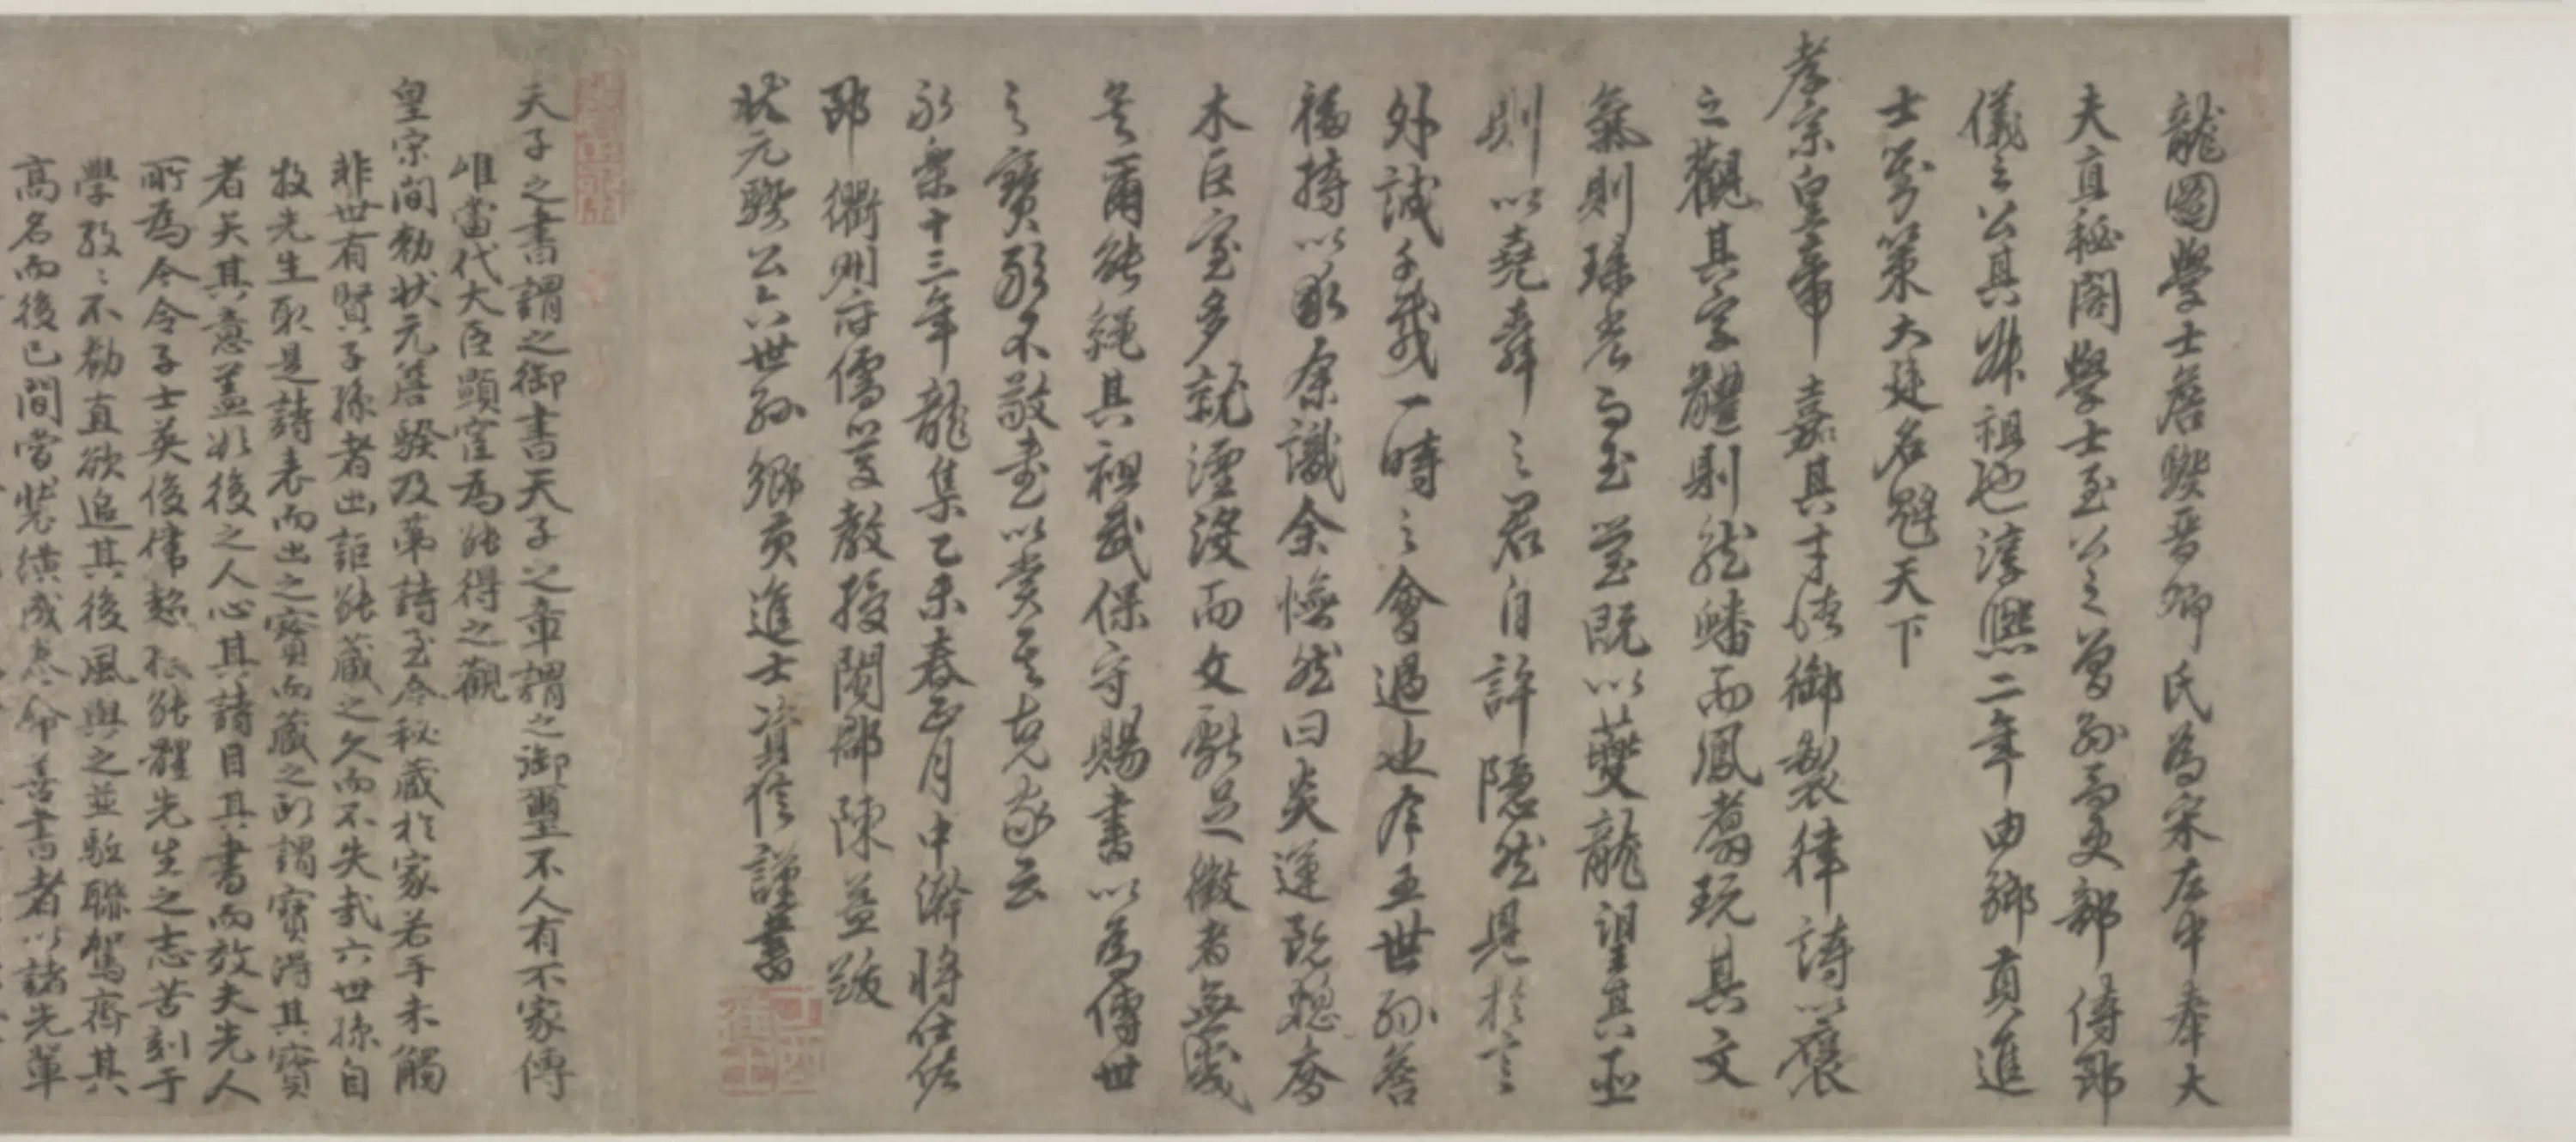 龍圖學士詹騤晉卿氏為宋左中奉大
夫直秘閣學士至公之曾孫吏部侍郎
儀之公其從祖也淳熙二年由鄉貢進
士對策大廷名魁天下
孝宗皇帝嘉其才俊御製律詩以褒
之觀其字體則龍蟠而鳳翥玩其文
氣則瑤光而玉瑩既以夔龍望其臣
則以堯舜之君自許隱然見於言
外誠千載一時之會遇也今五世孫詹
福持以求余識余憮然曰炎運既移喬
木臣室多就湮沒而文獻足徵者無幾
矣爾能繩其祖武保守賜書以為傳世
之寶敢不敬書以美其克家云
永樂十三年龍集乙未春正月中澣將仕佐
郎衢州府儒學教授閩郡陳益跋
狀元騤公六世孫鄉貢進士資信謹書
天子之書謂之御書天子之章謂之御璽不人有不家傳
惟當代大臣顯宦為能得之觀
皇宋間勑狀元詹騤及第詩至今秘藏於家若手未觸
非世有賢子孫者出詎能藏之久而不失哉六世孫自
牧先生取是詩表而出之寶而藏之所謂寶得其寶
者矣其意蓋欲後之人心其詩目其書而效夫先人
所為今令子士英俊偉超 能體先生之志苦刻于
學孜孜不勌直欲追其後風與之並駈聯駕齊其
高名而後已間嘗裝潢成卷命善書者以諸先輩